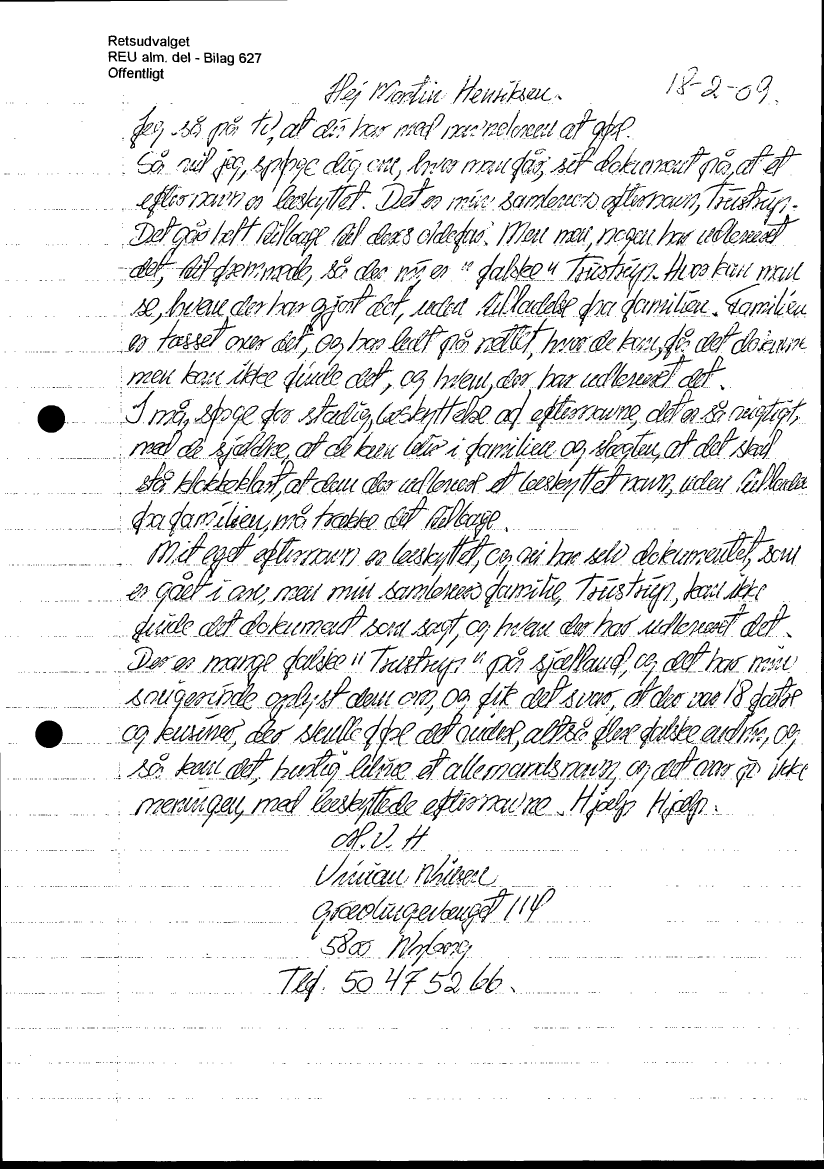 Retsudvalget
REU alm. del - Bilag 627
Offentligt
Hej Martin Henriksen. 18-2-09.
Jeg så på tv, at du har med navneloven at gøre.
Så vil jeg, spørge dig om, hvor man får, sit dokument på, at et
efternavn er beskyttet. Det er min samlevers efternavn, Trustrup.
Det går helt tilbage til deres oldefar. Men men, nogen har udleveret
det, til fremmede, så der nu er "falske" Trustrup. Hvor kan man
se, hvem der har gjort det, uden tilladelse fra familien. Familien
er tosset over det, og har ledt på nettet, hvor de kan, få det dokum
men kan ikke finde det, og hvem, der har udleveret det.
I må, sørge for stadig, beskyttelse af efternavne, det er så vigtigt,
med de sjældne, at de kan blive i familien og slægten, at det skal
stå klokkeklart, at dem der udleverer et beskyttet navn, uden tilladel
fra familien, må trække det tilbage.
Mit eget efternavn er beskyttet, og vi har selv dokumentet, som
er gået i arv, men min samlevers familie, Trustrup, kan ikke
finde det dokument som sagt, og hvem der har udleveret det.
Der er mange falske "Trustrup" på sjælland, og det har min
svigerinde oplyst dem om, og fik det svar, at der var 18 fætre
og kusiner, der skulle føre det videre, altså flere falske endnu, og
så kan det, hurtig blive et allemandsnavn, og det var jo ikke
meningen, med beskyttede efternavne. Hjælp Hjælp.
M.V.H
Vivian
114
5800 Nyborg
Tlf. 50 47 52 66.